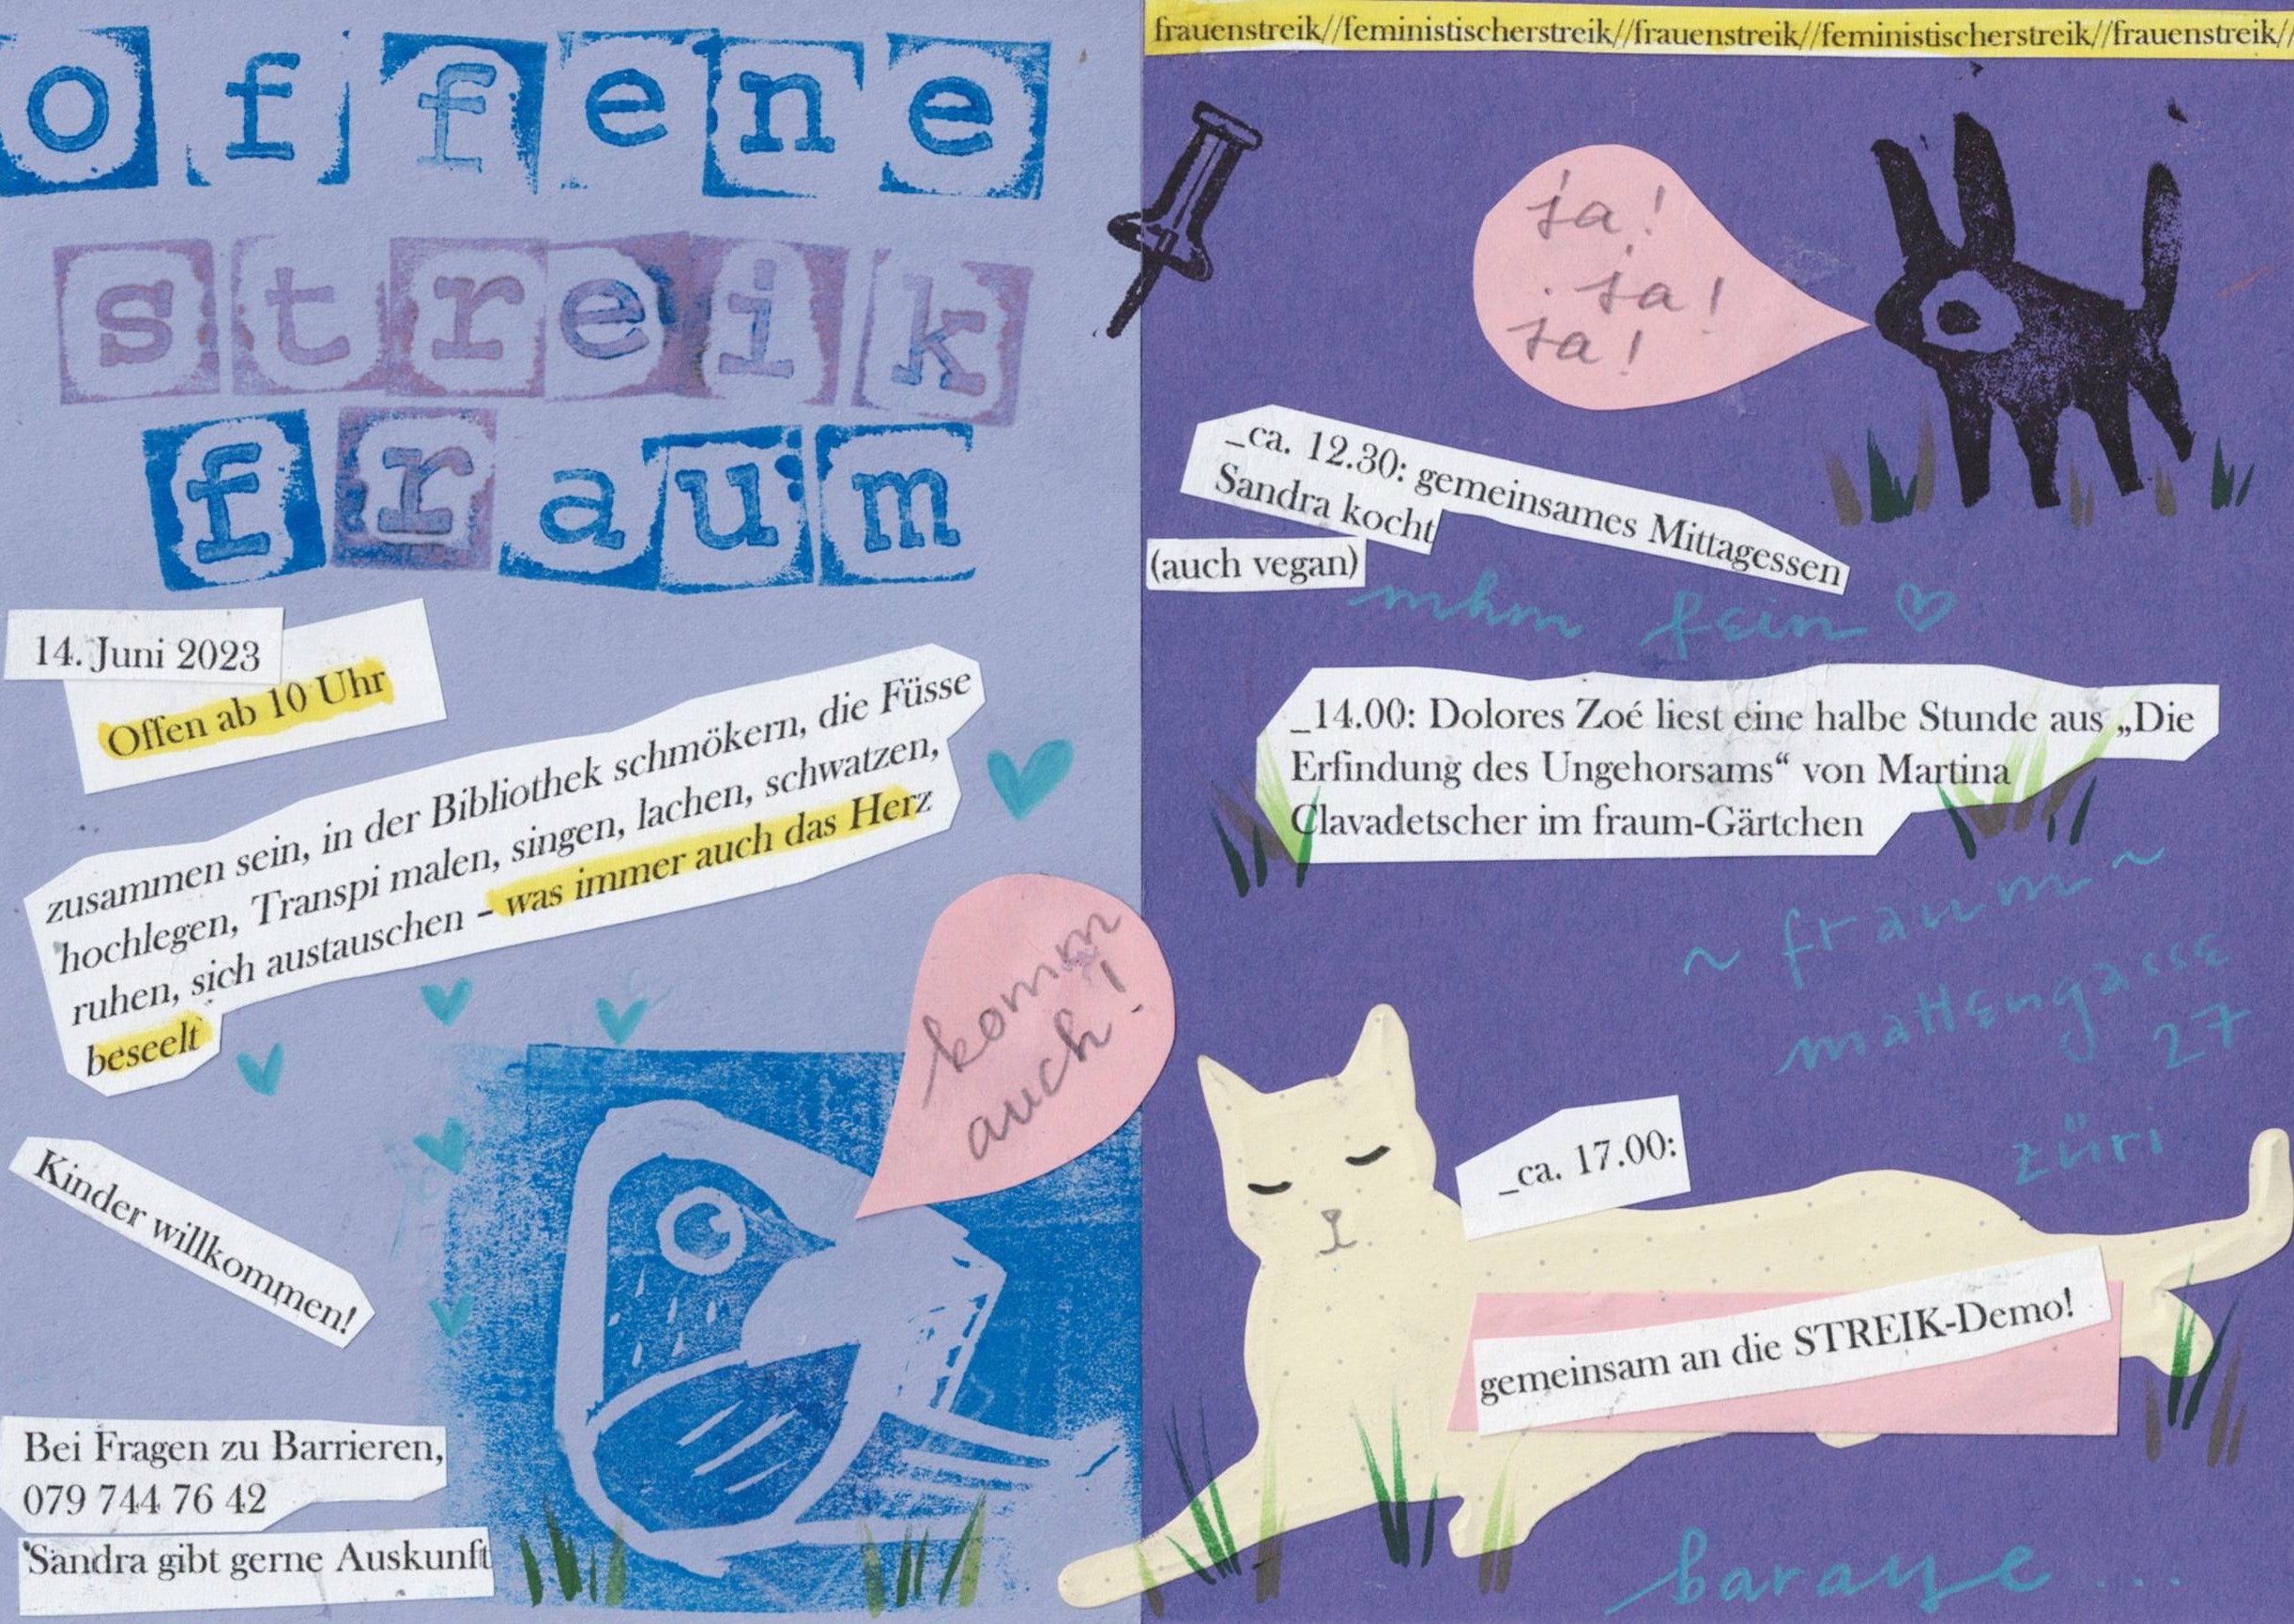 offene
streik
fraum
14. Juni 2023
Offen ab 10 Uhr
zusammen sein, in der Bibliothek schmökern, die Füsse
hochlegen, Transpi malen, singen, lachen, schwatzen,
ruhen, sich austauschen – was immer auch das Herz
beseelt
komm
auch!
Kinder willkommen!
Bei Fragen zu Barrieren,
079 744 76 42
Sandra gibt gerne Auskunft
frauenstreik//feministischerstreik//frauenstreik//feministischerstreik//frauenstreik//
ja!
ja!
ja!
_ca. 12.30: gemeinsames Mittagessen
Sandra kocht
(auch vegan)
mhm fein ♡
_14.00: Dolores Zoé liest eine halbe Stunde aus „Die
Erfindung des Ungehorsams“ von Martina
Clavadetscher im fraum-Gärtchen
~ fraum ~
mattengasse
27
züri
_ca. 17.00:
gemeinsam an die STREIK-Demo!